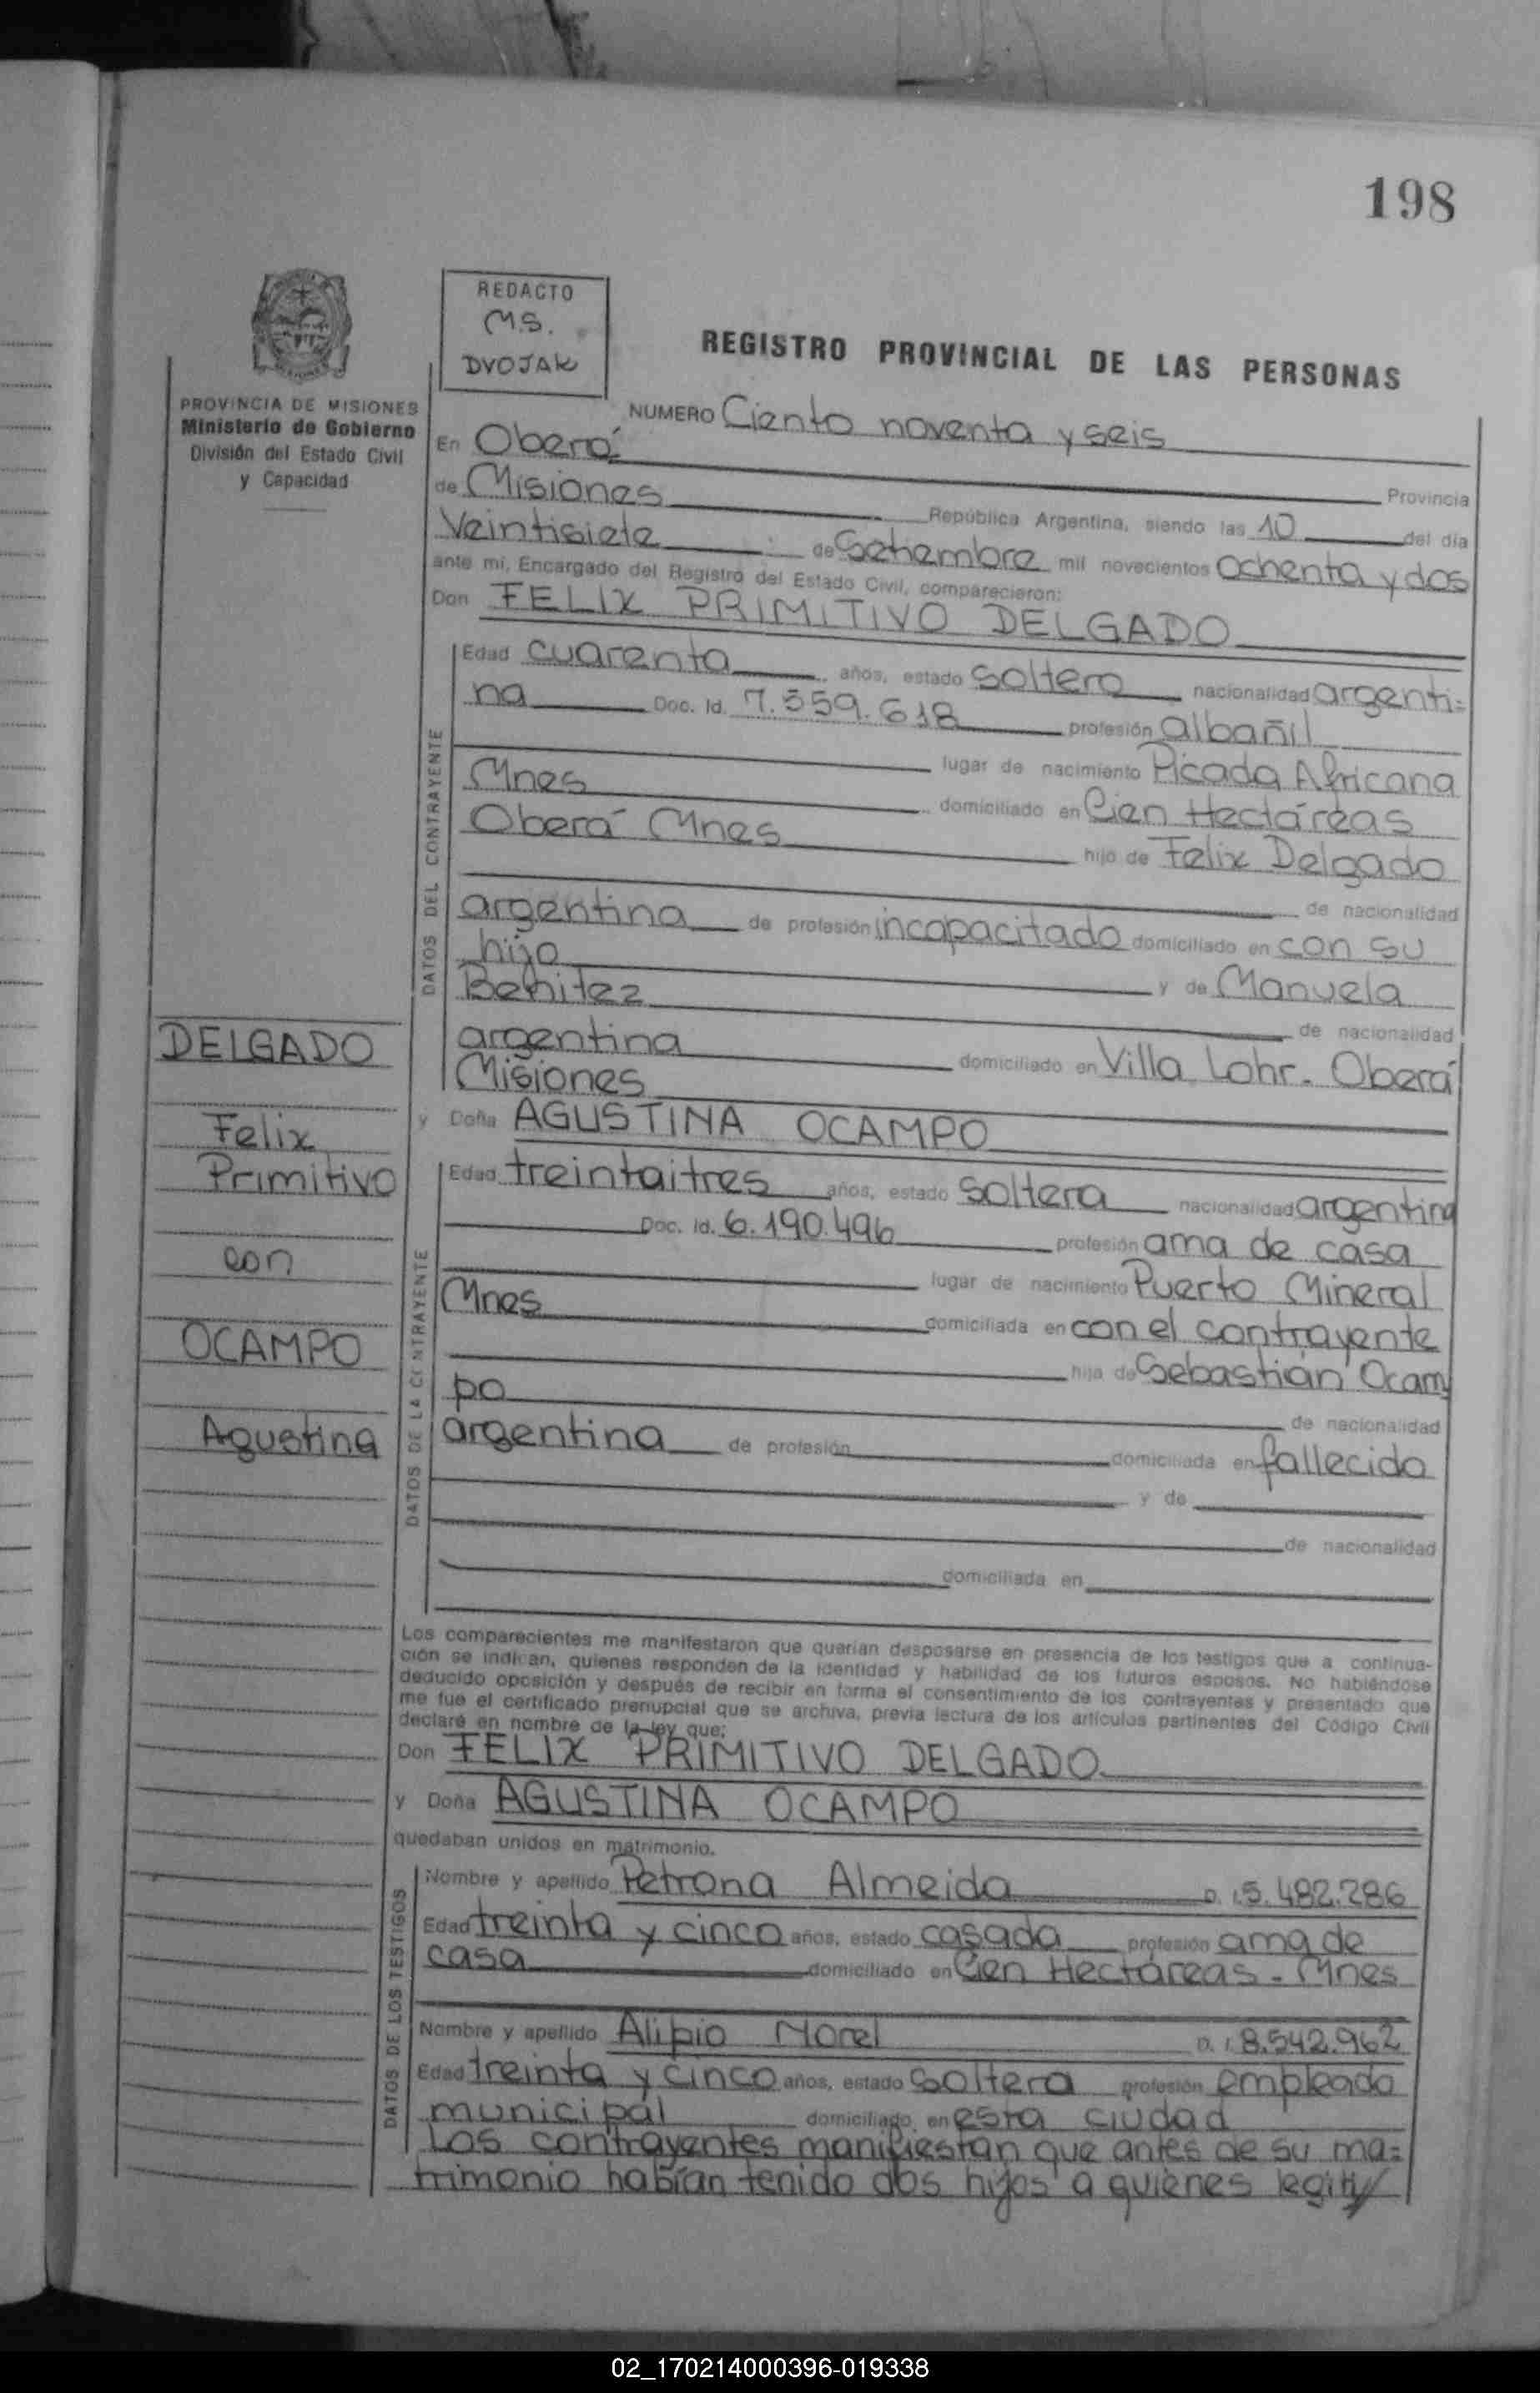 198
REDACTO
M.S.
DVOJAK
REGISTRO PROVINCIAL DE LAS PERSONAS
PROVINCIA DE MISIONES
Ministerio de Gobierno
División del Estado Civil
y Capacidad
NUMERO Ciento noventa y seis
En Oberá
Provincia
de Misiones República Argentina, siendo las 10 del día
Veintisiete de Setiembre mil novecientos Ochenta y dos
ante mí, Encargado del Registro del Estado Civil, comparecieron:
Don FELIX PRIMITIVO DELGADO
DATOS DEL CONTRAYENTE
Edad cuarenta años, estado soltero nacionalidad argenti=
na Doc. Id. 7.559.618 profesión albañil
lugar de nacimiento Picada Africana
Mnes domiciliado en Cien Hectáreas
Oberá Mnes hijo de Felix Delgado
de nacionalidad
argentina de profesión incapacitado domiciliado en con su
hijo y de Manuela
Benitez de nacionalidad
argentina domiciliado en Villa Lohr. Oberá
Misiones
y Doña AGUSTINA OCAMPO
DATOS DE LA CONTRAYENTE
Edad treintaitres años, estado soltera nacionalidad argentina
Doc. Id. 6.190.496 profesión ama de casa
lugar de nacimiento Puerto Mineral
Mnes domiciliada en con el contrayente
hija de Sebastián Ocam
po de nacionalidad
argentina de profesión domiciliada en fallecido
y de
de nacionalidad
domiciliada en
DELGADO
Felix
Primitivo
con
OCAMPO
Agustina
Los comparecientes me manifestaron que querían desposarse en presencia de los testigos que a continua-
ción se indican, quienes responden de la identidad y habilidad de los futuros esposos. No habiéndose
deducido oposición y después de recibir en forma el consentimiento de los contrayentes y presentado que
me fue el certificado prenupcial que se archiva, previa lectura de los artículos pertinentes del Código Civil
declaré en nombre de la ley que:
Don FELIX PRIMITIVO DELGADO
y Doña AGUSTINA OCAMPO
quedaban unidos en matrimonio.
DATOS DE LOS TESTIGOS
Nombre y apellido Petrona Almeida D. I. 5.482.286
Edad treinta y cinco años, estado casada profesión ama de
casa domiciliado en Cien Hectáreas - Mnes
Nombre y apellido Alipio Morel D. I. 8.542.962
Edad treinta y cinco años, estado soltera profesión empleado
municipal domiciliado en esta ciudad
Los contrayentes manifiestan que antes de su ma=
trimonio habían tenido dos hijos a quienes legiti/
02_170214000396-019338